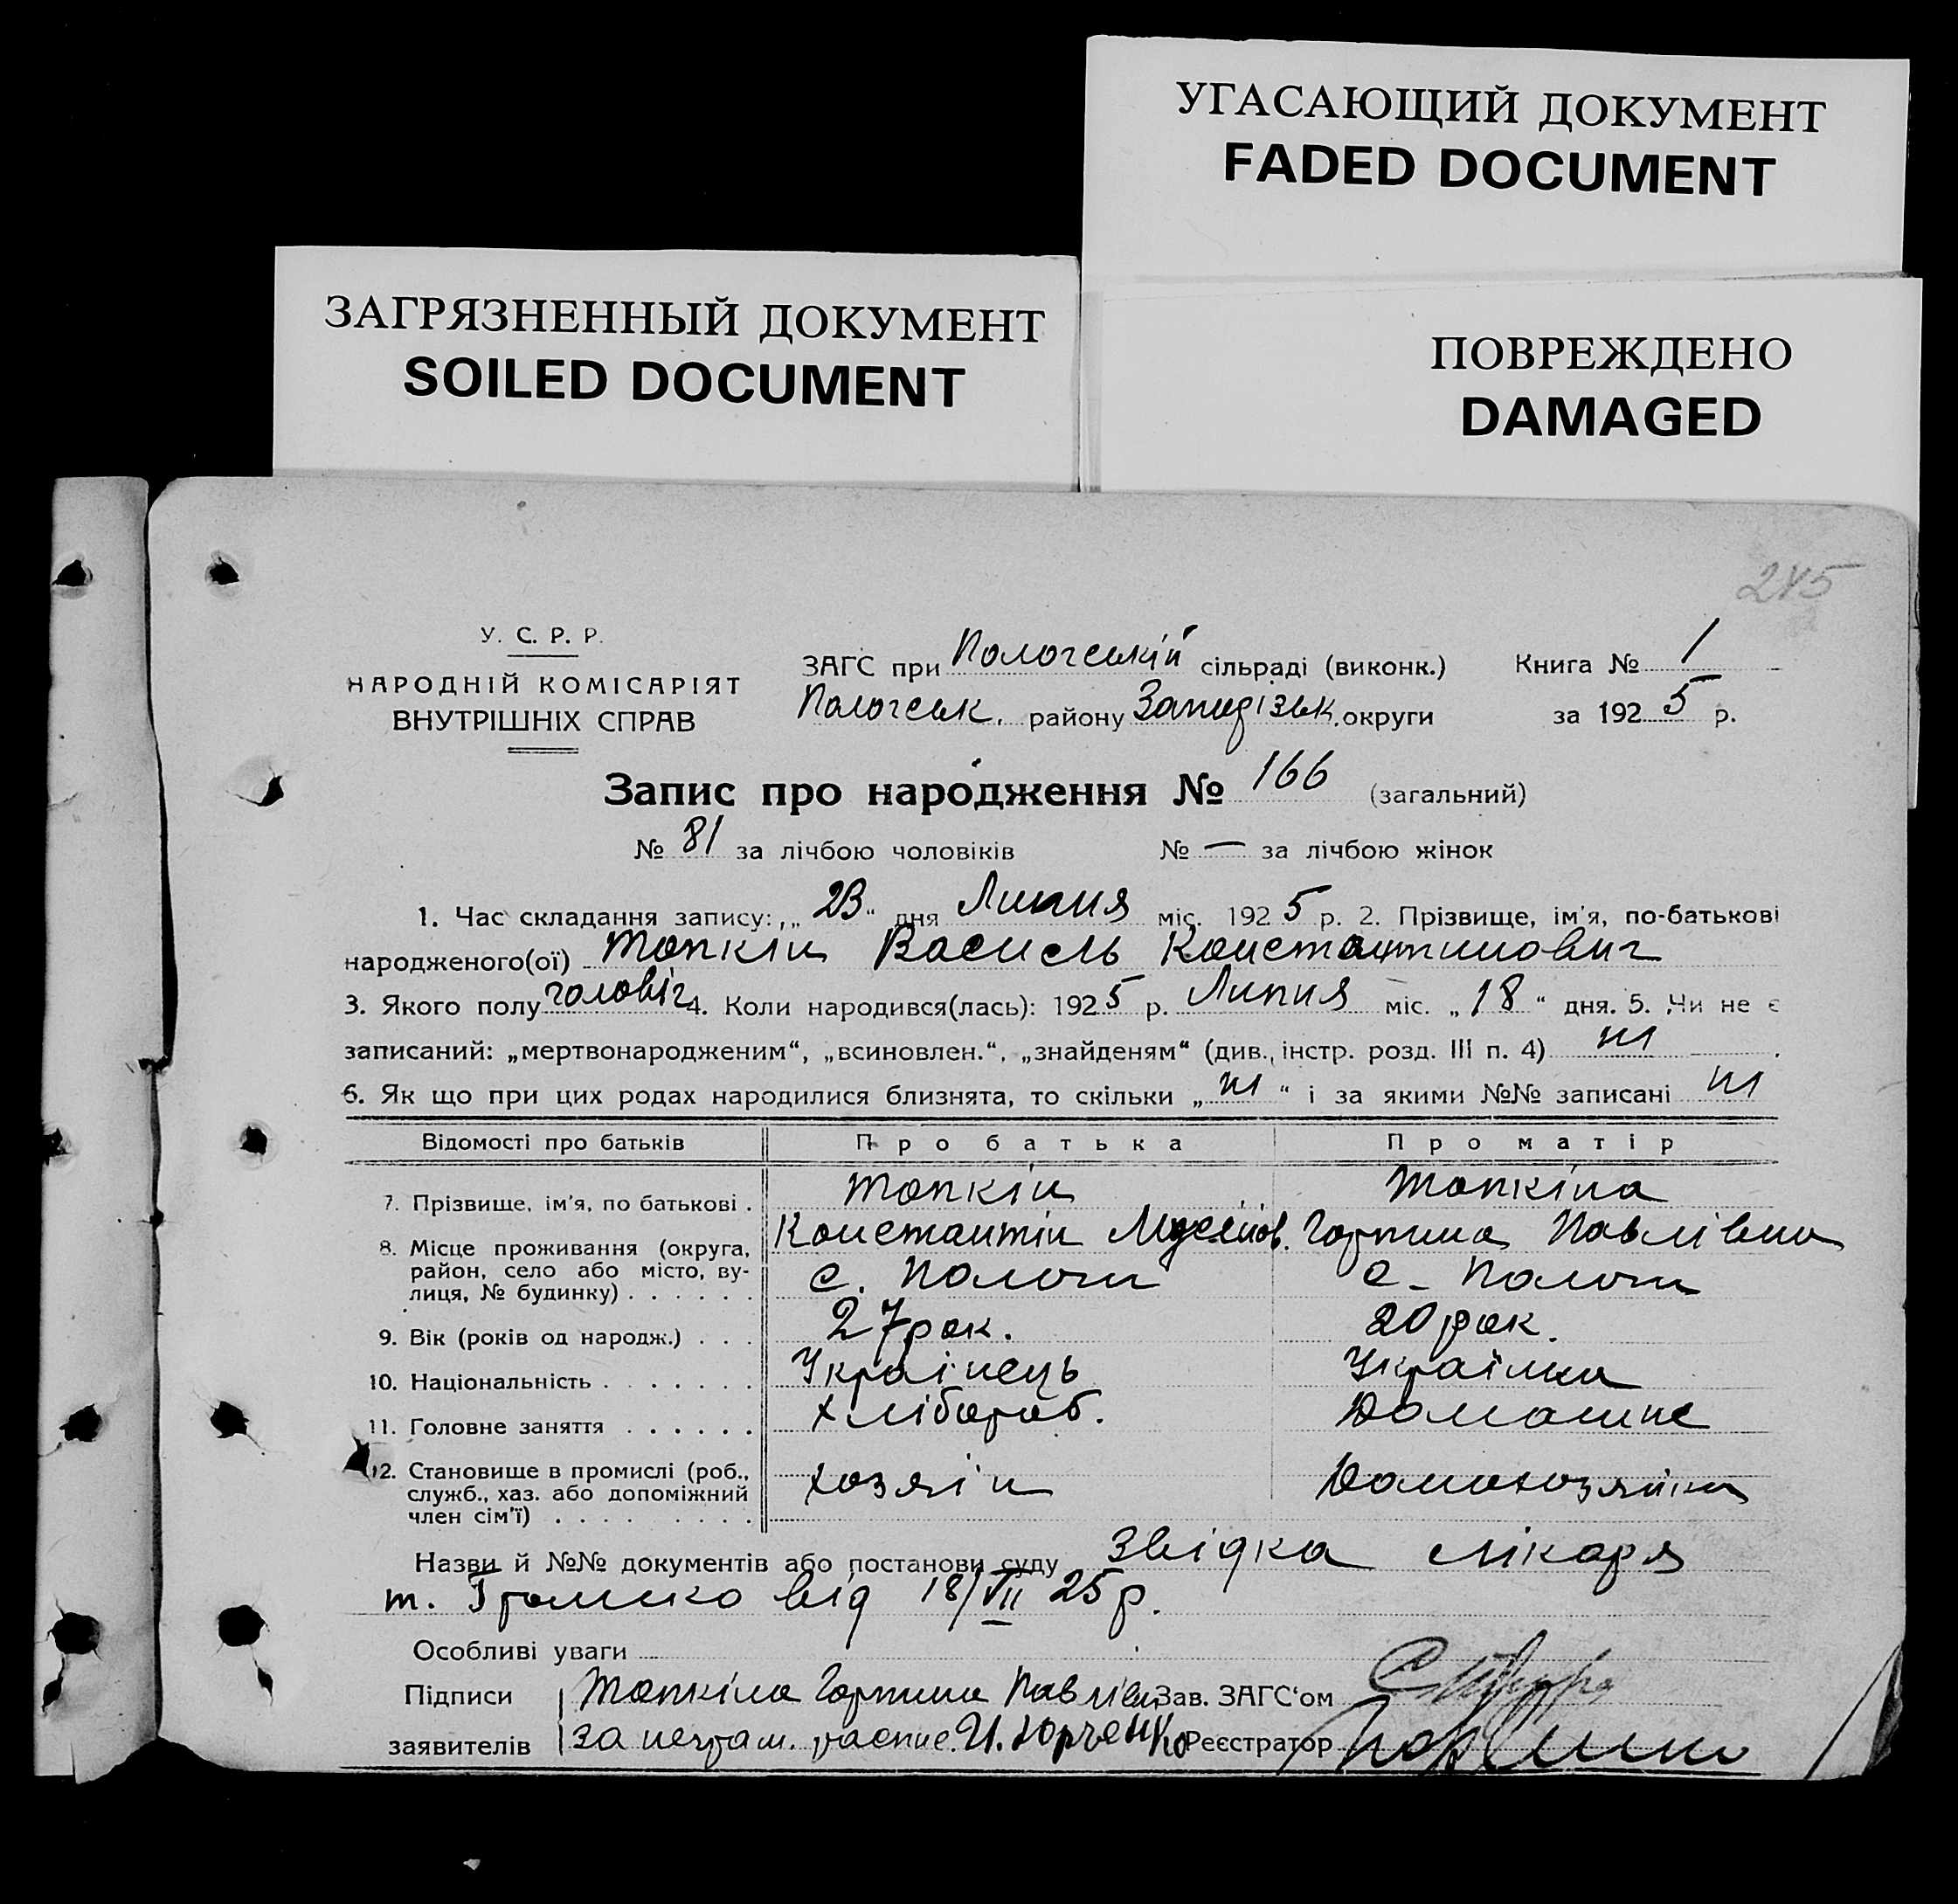 УГАСАЮЩИЙ ДОКУМЕНТ
FADED DOCUMENT
ЗАГРЯЗНЕННЫЙ ДОКУМЕНТ
SOILED DOCUMENT
ПОВРЕЖДЕНО
DAMAGED
245
У. С. Р. Р.
НАРОДНІЙ КОМІСАРІЯТ
ВНУТРІШНІХ СПРАВ
ЗАГС при Пологській сільраді (виконк.) Книга № 1
Пологськ. району Запорізьк. округи за 1925 р.
Запис про народження № 166 (загальний)
№ 81 за лічбою чоловіків № — за лічбою жінок
1. Час складання запису: „23“ дня Липня міс. 1925 р. 2. Прізвище, ім'я, по-батькові
народженого(ої) Топкін Василь Константинович
3. Якого полу чоловіч 4. Коли народився(лась): 1925 р. Липня міс. „18“ дня. 5. Чи не є
записаний: „мертвонародженим“, „всиновлен.“, „знайденям“ (див. інстр. розд. III п. 4) ні
6. Як що при цих родах народилися близнята, то скільки „ні“ і за якими №№ записані ні
Відомості про батьків Про батька Про матір
7. Прізвище, ім'я, по батькові . Топкін Топкіна
Константін Горпина Павлівна
8. Місце проживання (округа, район, село або місто, вулиця, № будинку) . . . . . . с. Пологи с. Пологи
9. Вік (років од народж.) . . . 27 рок. 20 рок.
10. Національність . . . . . . . Українець Українка
11. Головне заняття . . . . . . Хлібороб. Домашне
12. Становище в промислі (роб., служб., хаз. або допоміжний член сім'ї) . . . . . . . . Хозяін Домохозяйка
Назви й №№ документів або постанови суду Звідка лікаря
т. Громико від 18/VII 25 р.
Особливі уваги
Підписи Топкіна Горпина Павлівн Зав. ЗАГС'ом
заявителів за неграм. распис. И. Юрченко Реєстратор